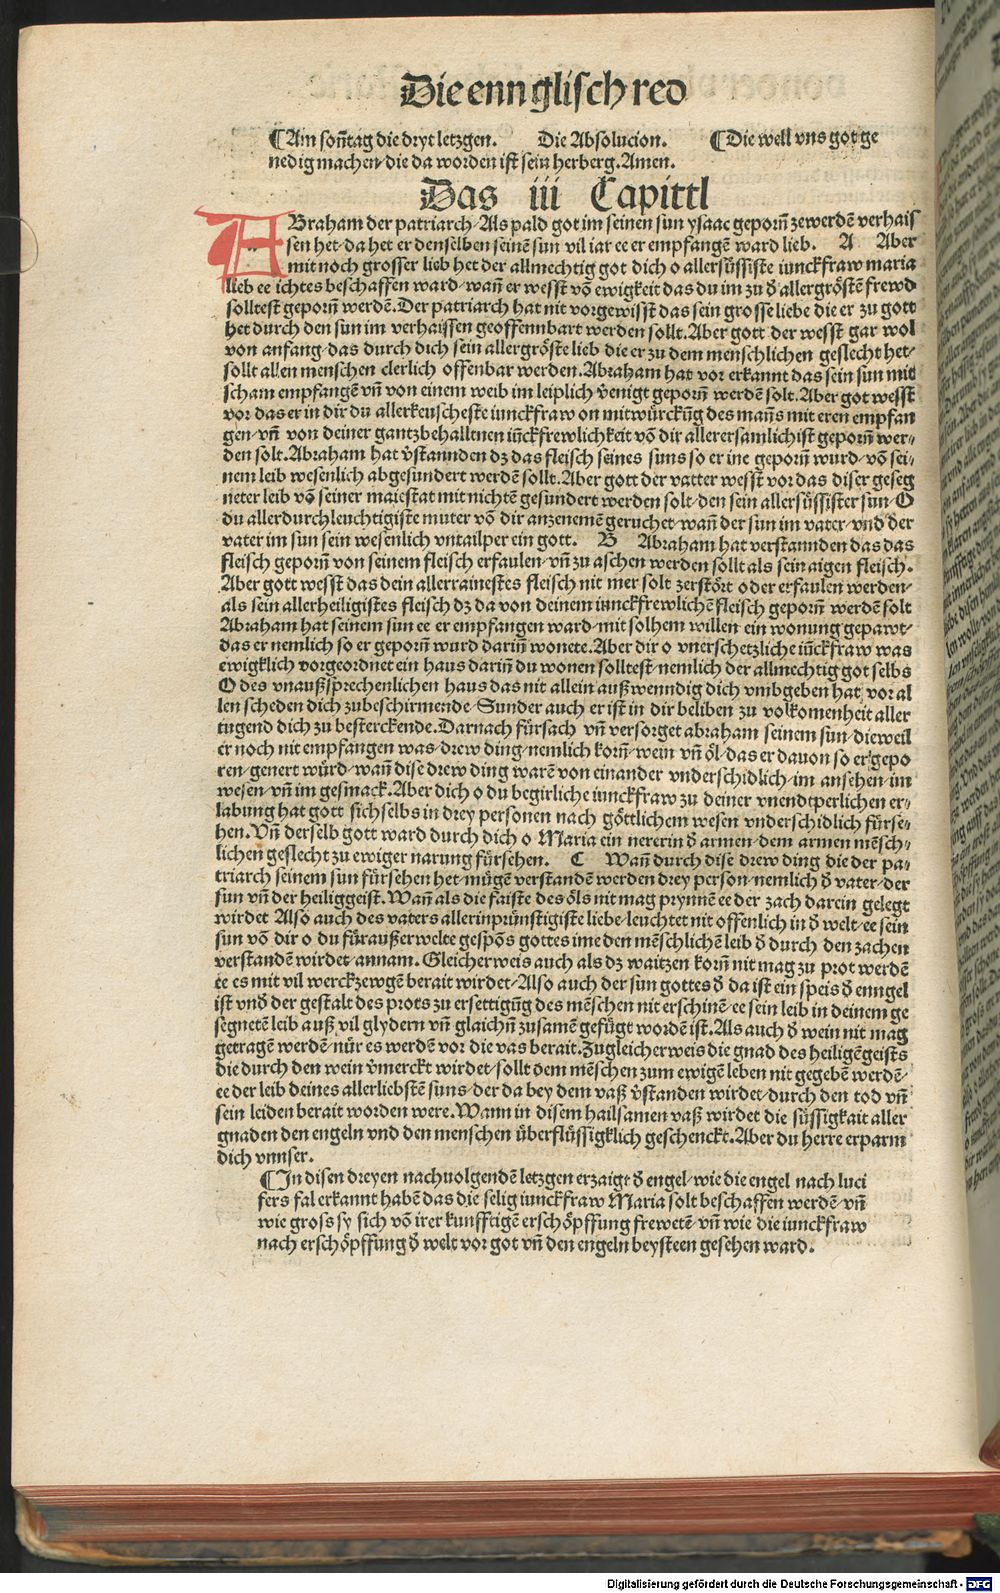 Die ennglisch red
¶Am soñtag die dryt letzgen. Die Absolucion. ¶Die well vns got ge
nedig machen die da worden ist sein herberg. Amen.
Das iii Capittl
ABraham der patriarch/Als pald got im seinen sun ysaac geporñ zewerdẽ verhais
sen het/da het er denselben seinẽ sun vil iar ee er empfangẽ ward lieb. A Aber
mit noch grosser lieb het der allmechtig got dich o allersüssiste iunckfraw maria
lieb ee ichtes beschaffen ward/wañ er wesst võ ewigkeit das du im zu d̕ allergröstẽ frewd
solltest geporñ werdẽ. Der patriarch hat nit vorgewisst das sein grosse liebe die er zu gott
het durch den sun im verhaissen geoffennbart werden sollt. Aber gott der wesst gar wol
von anfang/das durch dich sein allergröste lieb die er zu dem menschlichen geslecht het/
sollt allen menschen clerlich offenbar werden. Abraham hat vor erkannt das sein sun mit
scham empfangẽ vñ von einem weib im leiplich v̕enigt geporñ werdẽ solt. Aber got wesst
vor das er in dir du allerkeuscheste iunckfraw on mitwürckũg des mañs mit eren empfan
gen/vñ von deiner gantzbehalltnen iũckfrewlichkeit võ dir allerersamlichist geporñ wer/
den solt. Abraham hat v̕stannden dz das fleisch seines suns so er ine geporñ wurd/võ sei/
nem leib wesenlich abgesundert werdẽ sollt. Aber gott der vatter wesst vor das diser geseg
neter leib võ seiner maiestat mit nichtẽ gesundert werden solt/den sein allersüssister sun/O
du allerdurchleuchtigiste muter võ dir anzenemẽ geruchet/wañ der sun im vater/vnd der
vater im sun sein wesenlich vntailper ein gott. B Abraham hat verstannden das das
fleisch geporñ von seinem fleisch erfaulen/vñ zu aschen werden sollt als sein aigen fleisch.
Aber gott wesst das dein allerrainestes fleisch nit mer solt zerstört oder erfaulen werden/
als sein allerheiligistes fleisch dz da von deinem iunckfrewlichẽ fleisch geporñ werdẽ solt
Abraham hat seinem sun ee er empfangen ward/mit solhem willen ein wonung gepawt/
das er nemlich so er geporñ wurd dariñ wonete. Aber dir o vnerschetzliche iũckfraw was
ewigklich vorgeordnet ein haus dariñ du wonen solltest/nemlich der allmechtig got selbs
O des vnaußsprechenlichen haus das nit allein außwenndig dich vmbgeben hat/vor al
len scheden dich zubeschirmende/Sunder auch er ist in dir beliben zu volkomenheit aller
tugend dich zu besterckende. Darnach fürsach vñ versorget abraham seinem sun/dieweil
er noch nit empfangen was/drew ding/nemlich korñ/wein vñ öl/das er davon so er gepo
ren/genert würd/wañ dise drew ding warẽ von einander vnderschidlich/im ansehen/im
wesen/vñ im gesmack. Aber dich o du begirliche iunckfraw zu deiner vnendtperlichen er/
labung hat gott sichselbs in drey personen nach göttlichem wesen vnderschidlich fürse/
hen. Vñ derselb gott ward durch dich o Maria ein nererin d̕ armen/dem armen mẽsch/
lichen geslecht zu ewiger narung fürsehen. C Wañ durch dise drew ding die der pa/
triarch seinem sun fürsehen het/mügẽ verstandẽ werden drey person/nemlich d̕ vater/der
sun vñ der heiliggeist. Wañ als die faiste des öls nit mag prynnẽ ee der zach darein gelegt
wirdet Also auch des vaters allerinprünstigiste liebe/leuchtet nit offenlich in d̕ welt/ee sein
sun võ dir o du fürauß erwelte gespõs gottes ime den mẽschlichẽ leib d̕ durch den zachen
verstandẽ wirdet/annam. Gleicherweis auch als dz waitzen korñ nit mag zu prot werdẽ
ee es mit vil werckzewgẽ berait wirdet/Also auch der sun gottes d̕ da ist ein speis d̕ enngel
ist vnd̕ der gestalt des prots zu ersettigũg des mẽschen nit erschinẽ/ee sein leib in deinem ge
segnetẽ leib auß vil glydern vñ glaichñ zusamẽ gefügt wordẽ ist. Als auch d̕ wein nit mag
getragẽ werdẽ/nür es werdẽ vor die vas berait. Zugleicherweis die gnad des heiligẽgeists
die durch den wein v̕merckt wirdet/sollt dem mẽschen zum ewigẽ leben nit gegebẽ werdẽ/
ee der leib deines allerliebstẽ suns/der da bey dem vaß v̕standen wirdet/durch den tod vñ
sein leiden berait worden were. Wann in disem hailsamen vaß wirdet die süssigkait aller
gnaden den engeln vnd den menschen überflüssigklich geschenckt. Aber du herre erparm
dich vnnser.
¶In disen dreyen nachuolgendẽ letzgen erzaigt d̕ engel/wie die engel nach luci
fers fal erkannt habẽ das die selig iunckfraw Maria solt beschaffen werdẽ/vñ
wie gross sy sich võ irer kunfftigẽ erschöpffung frewetẽ/vñ wie die iunckfraw
nach erschöpffung d̕ welt vor got vñ den engeln beysteen gesehen ward.
Digitalisierung gefördert durch die Deutsche Forschungsgemeinschaft - DFG